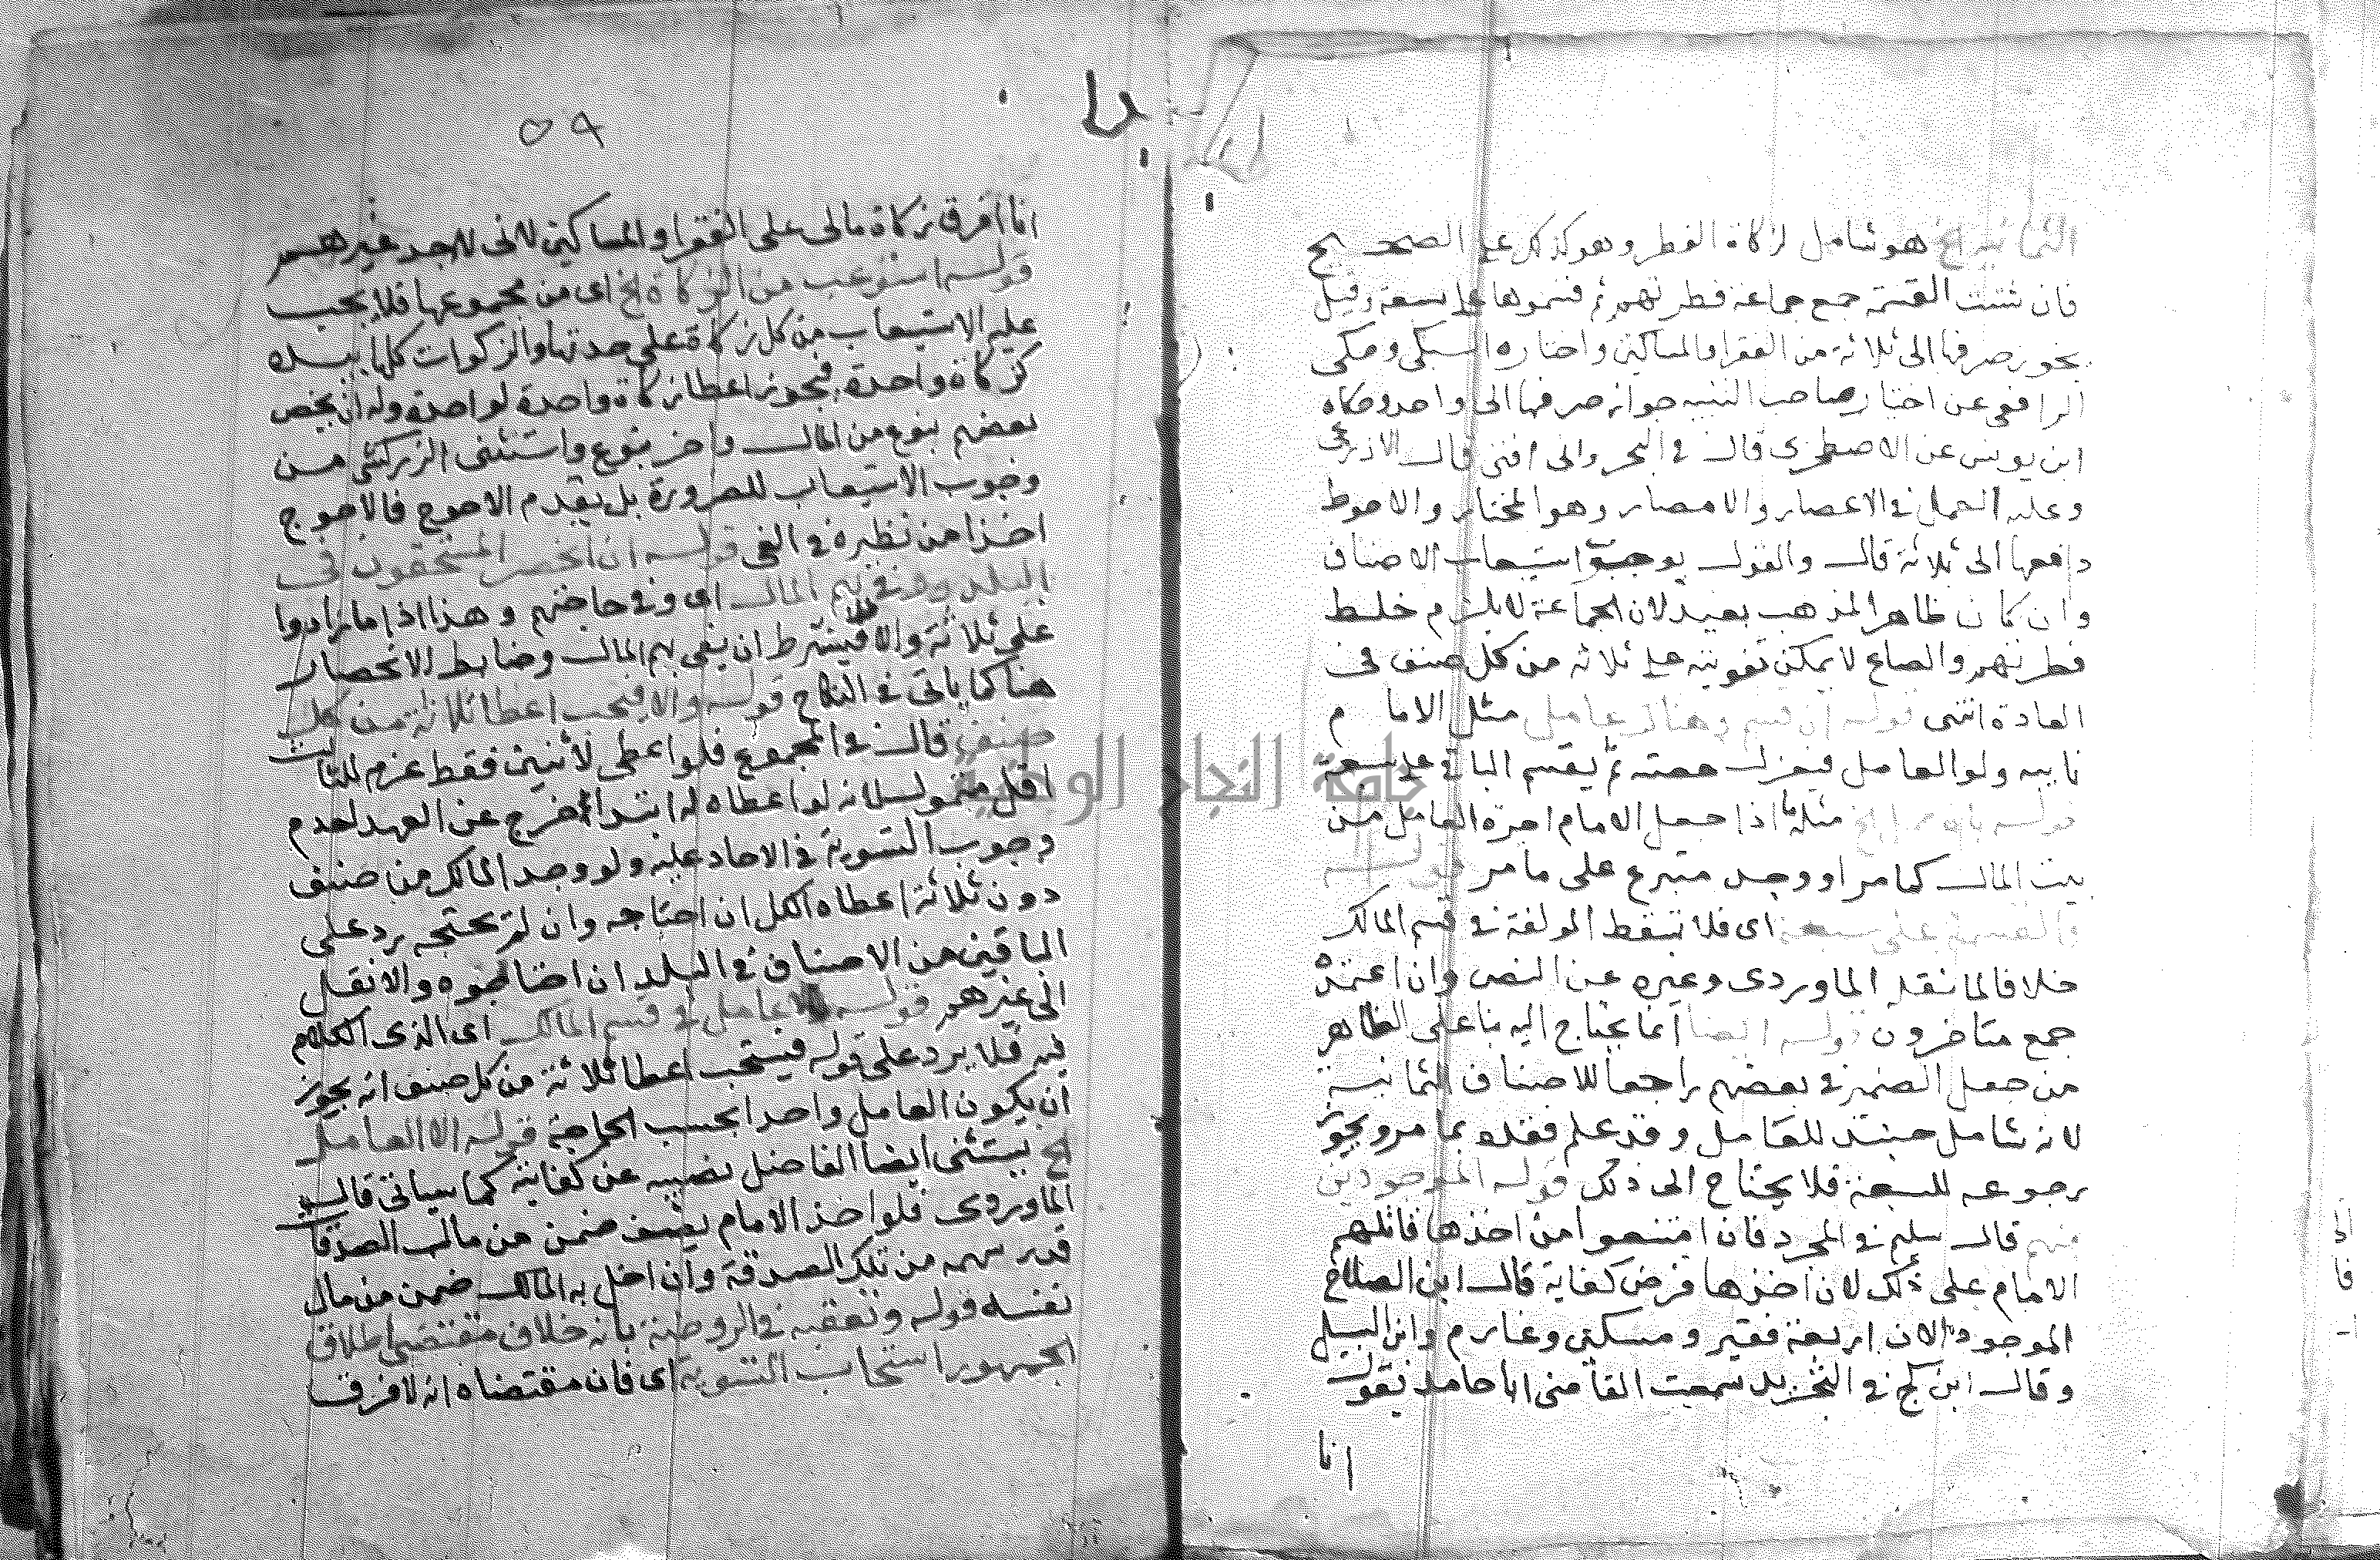 الثمانية الخ هو شامل لزكاة الفطر وهو كذلك على الصحيح
فان شقت القسمة جمع جماعة فطرتهم ثم قسموها على سبعة وقيل
يجوز صرفها الى ثلاثة من الفقرا والمساكين واختاره السبكى وحكى
الرافعى عن اختيار صاحب التنبيه جوازه صرفها الى واحد وحكاه
ابن يونس عن الاصطخرى قال في البحر وانى افتى قال الاذرعى
وعليه العمل في الاعصار والامصار وهو المختار والاحوط
دفعها الى ثلاثة قال والقول بوجوب استيعاب الاصناف
وان كان ظاهر المذهب بعيد لان الجماعة لا يلزم خلط
فطرتهم والصاع لا يمكن تفرقته على ثلاثة من كل صنف في
العادة انتهى قوله ان قسم وهناك عامل مثل الامام
نايبه ولو العامل فيعزل حصته ثم يقسم الباقى على سبعة
قوله بان الخ مثله ما اذا جعل الامام اجرة العامل من
بيت المال كما مر او وجد متبرع على ما مر قوله
فالقسمة على سبعة اى فلا تسقط المولفة في قسم المالك
خلافا لما نقله الماوردى وغيره عن النص وان اعتمده
جمع متاخرون قوله ايضا انما يحتاج اليه بنا على الظاهر
من جعل الضمير في بعضهم راجعا للاصناف الثمانية
لانه شامل حينئذ للعامل وقد علم فقده بما مر ويجوز
رجوعه للسبعة فلا يحتاج الى ذلك قوله الموجودين
منهم قال سليم في المجرد فان امتنعوا من اخذها قاتلهم
الامام على ذلك لان اخذها فرض كفاية قال ابن الصلاح
الموجود الان اربعة فقير ومسكين وغارم وابن السبيل
وقال ابن كج في التجريد سمعت القاضى ابا حامد يقول
انا
٥٩
انا افرق زكاة مالى على الفقرا والمساكين لانى لا اجد غيرهم
قوله استوعب من الزكاة الخ اى من مجموعها فلا يجب
عليه الاستيعاب من كل زكاة على حدتها والزكوات كلها بيده
كزكاة واحدة فيجوز اعطا زكاة واحدة لواحد وله ان يخص
بعضهم بنوع من المال واخر بنوع واستثنى الزركشى من
وجوب الاستيعاب للضرورة بل يقدم الاحوج فالاحوج
اخذا من نظيره في الفى قوله ان انحصر المستحقون في
البلد ووفى بهم المال اى وفى حاجتهم وهذا اذا ما زادوا
على ثلاثة والا فلا يشترط ان يفى بهم المال وضابط الانحصار
هنا كما ياتى في النكاح قوله والا فيجب اعطا ثلاثة من كل
صنف قال في المجموع فلو اعطى لاثنين فقط غرم للثالث
اقل متمول لانه لو اعطاه له ابتداء خرج عن العهد لعدم
وجوب التسوية في الاحاد عليه ولو وجد المالك من صنف
دون ثلاثة اعطاه الكل ان احتاجه وان لم يحتجه رد على
الباقين من الاصناف في البلد ان احتاجوه والا نقل
الى غيرهم قوله لا عامل في قسم المالك اى الذى الكلام
فيه فلا يرد على قوله فيستحب اعطا ثلاثة من كل صنف انه يجوز
ان يكون العامل واحدا بحسب الحاجة قوله الا العامل
الخ يستثنى ايضا الفاضل نصيبه عن كفايته كما سياتى قال
الماوردى فلو اخذ الامام بصنف ضمن من مال الصدقات
قدر سهمه من تلك الصدقة وان اخل به المالك ضمن من مال
نفسه قوله وتعقبه في الروضة بانه خلاف مقتضى اطلاق
الجمهور استحباب التسوية اى فان مقتضاه انه لا فرق
جامعة النجاح الوطنية